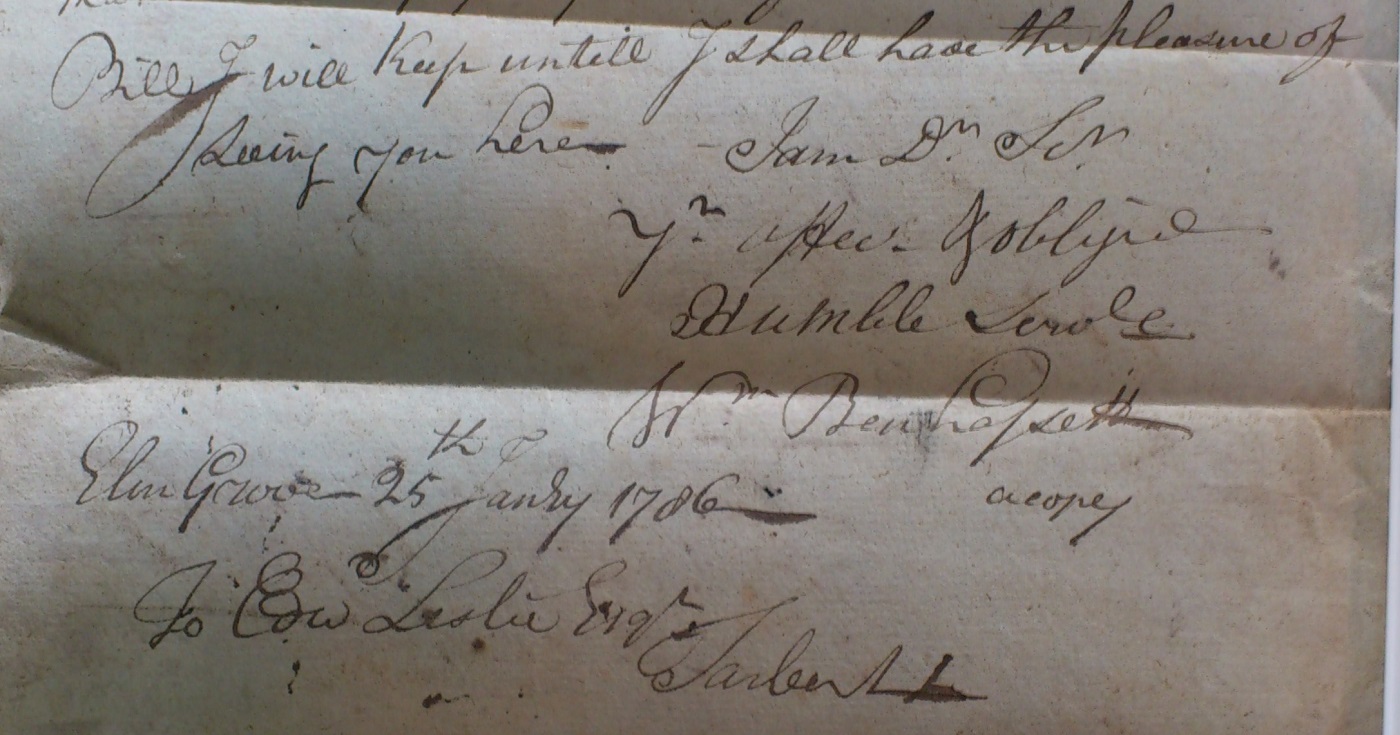 Bill I will Keep untill I shall have the pleasure of
seeing you here - I am Dr. Sir.
Yr. affec. & oblig'd
Humble Serv.
Wm. Ben Hassett
Elm Grove 25th Janry 1786
a copy
To Edwd Leslie Esqr.
Tarbert